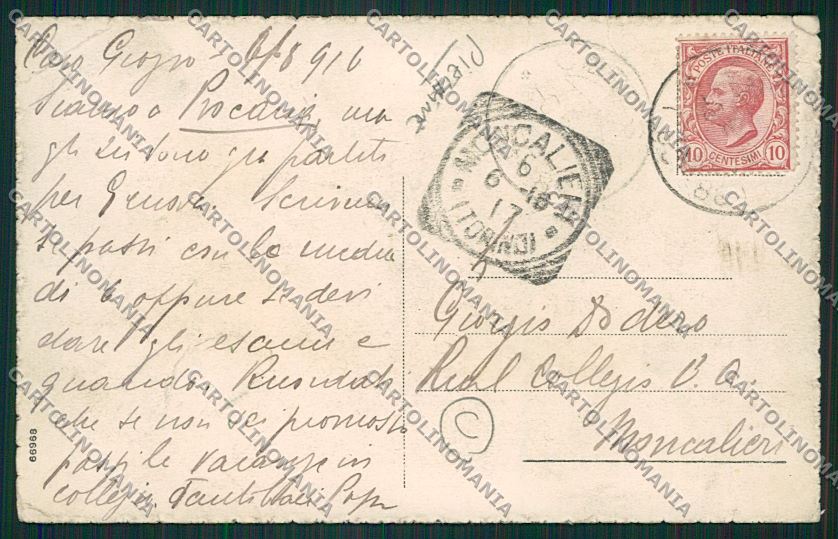 Caro Giorgio
Siamo a Procaria, ma
gli zii sono già partiti
per Genova. Scrivimi
se passi con la media
di 6 oppure se devi
dare gli esami e
quando. Ricordati
che se non sei promosso
passi le vacanze in
collegio. Tanti baci Papà
Piemonte
POSTE ITALIANE
10 CENTESIMI 10
MONCALIERI
6 - 18
6
17
(TORINO)
Giorgio Dodero
Real Collegio C. A.
Moncalieri
C
66968
CARTOLINOMANIA